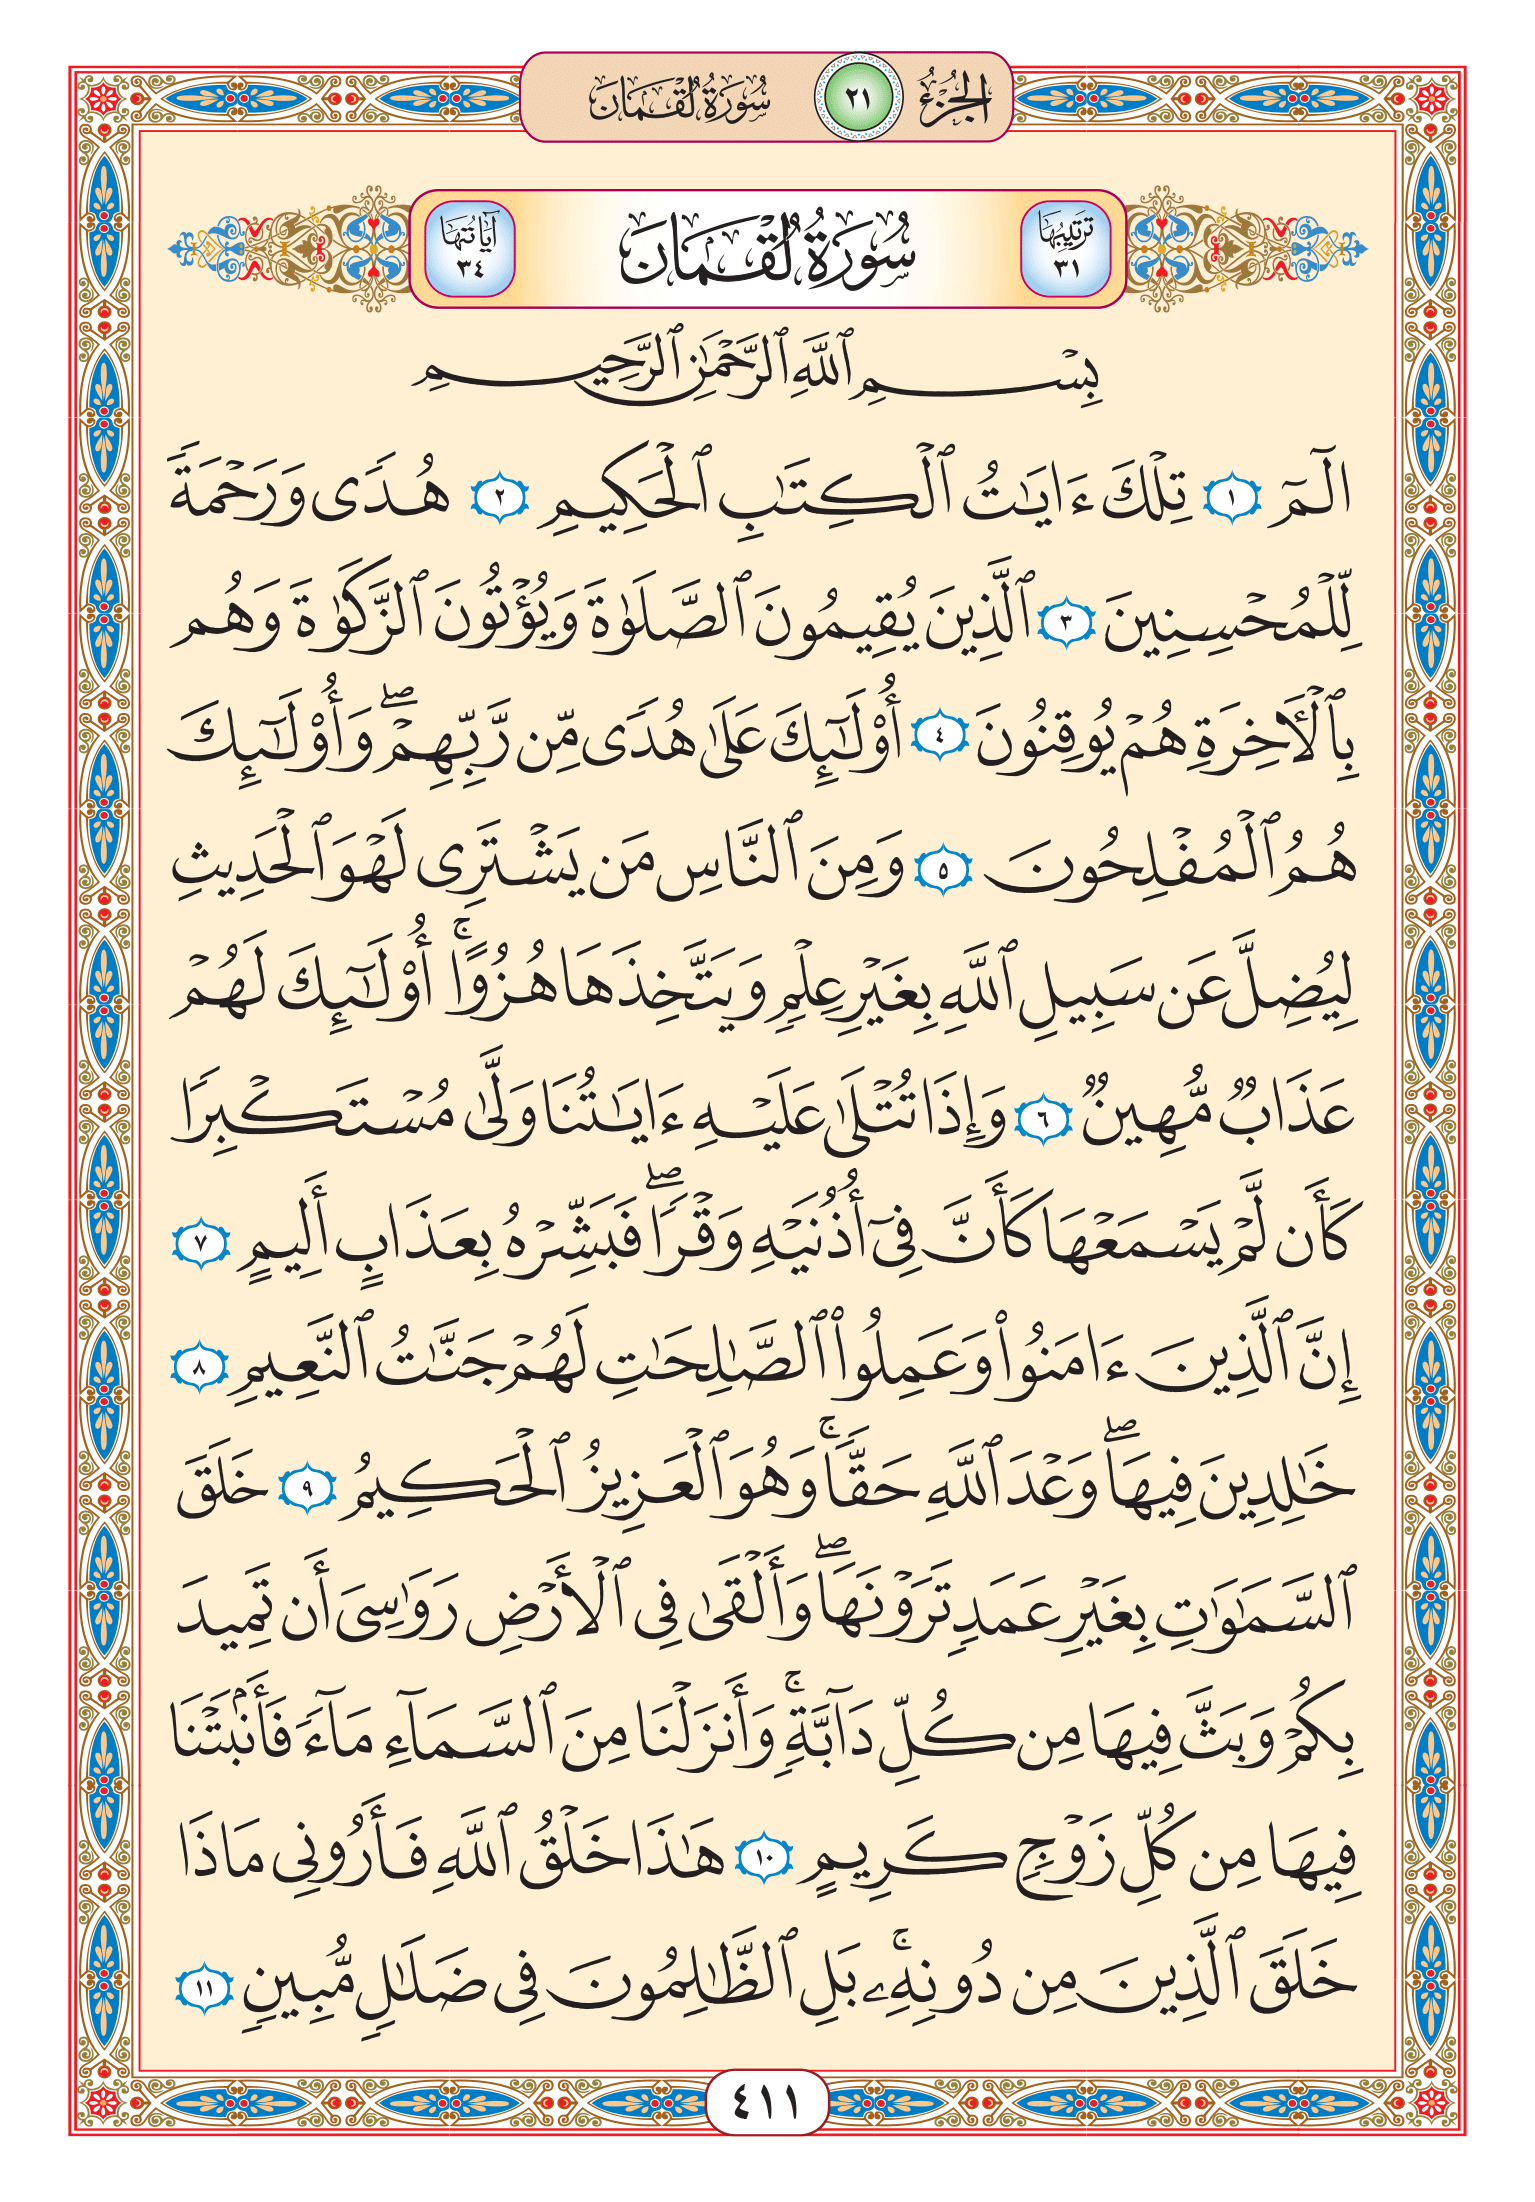 الجُزْءُ ٢١ سُورَةُ لُقْمَان
تَرتِيبُهَا ٣١ سُورَةُ لُقْمَان آيَاتُهَا ٣٤
بِسْمِ ٱللَّهِ ٱلرَّحْمَٰنِ ٱلرَّحِيمِ
الٓمٓ ١ تِلْكَ ءَايَٰتُ ٱلْكِتَٰبِ ٱلْحَكِيمِ ٢ هُدًى وَرَحْمَةً
لِّلْمُحْسِنِينَ ٣ ٱلَّذِينَ يُقِيمُونَ ٱلصَّلَوٰةَ وَيُؤْتُونَ ٱلزَّكَوٰةَ وَهُم
بِٱلْأٓخِرَةِ هُمْ يُوقِنُونَ ٤ أُو۟لَٰٓئِكَ عَلَىٰ هُدًى مِّن رَّبِّهِمْ ۖ وَأُو۟لَٰٓئِكَ
هُمُ ٱلْمُفْلِحُونَ ٥ وَمِنَ ٱلنَّاسِ مَن يَشْتَرِى لَهْوَ ٱلْحَدِيثِ
لِيُضِلَّ عَن سَبِيلِ ٱللَّهِ بِغَيْرِ عِلْمٍ وَيَتَّخِذَهَا هُزُوًا ۚ أُو۟لَٰٓئِكَ لَهُمْ
عَذَابٌ مُّهِينٌ ٦ وَإِذَا تُتْلَىٰ عَلَيْهِ ءَايَٰتُنَا وَلَّىٰ مُسْتَكْبِرًا
كَأَن لَّمْ يَسْمَعْهَا كَأَنَّ فِىٓ أُذُنَيْهِ وَقْرًا ۖ فَبَشِّرْهُ بِعَذَابٍ أَلِيمٍ ٧
إِنَّ ٱلَّذِينَ ءَامَنُوا۟ وَعَمِلُوا۟ ٱلصَّٰلِحَٰتِ لَهُمْ جَنَّٰتُ ٱلنَّعِيمِ ٨
خَٰلِدِينَ فِيهَا ۖ وَعْدَ ٱللَّهِ حَقًّا ۚ وَهُوَ ٱلْعَزِيزُ ٱلْحَكِيمُ ٩ خَلَقَ
ٱلسَّمَٰوَٰتِ بِغَيْرِ عَمَدٍ تَرَوْنَهَا ۖ وَأَلْقَىٰ فِى ٱلْأَرْضِ رَوَٰسِىَ أَن تَمِيدَ
بِكُمْ وَبَثَّ فِيهَا مِن كُلِّ دَآبَّةٍ ۚ وَأَنزَلْنَا مِنَ ٱلسَّمَآءِ مَآءً فَأَنۢبَتْنَا
فِيهَا مِن كُلِّ زَوْجٍ كَرِيمٍ ١٠ هَٰذَا خَلْقُ ٱللَّهِ فَأَرُونِى مَاذَا
خَلَقَ ٱلَّذِينَ مِن دُونِهِۦ ۚ بَلِ ٱلظَّٰلِمُونَ فِى ضَلَٰلٍ مُّبِينٍ ١١
٤١١